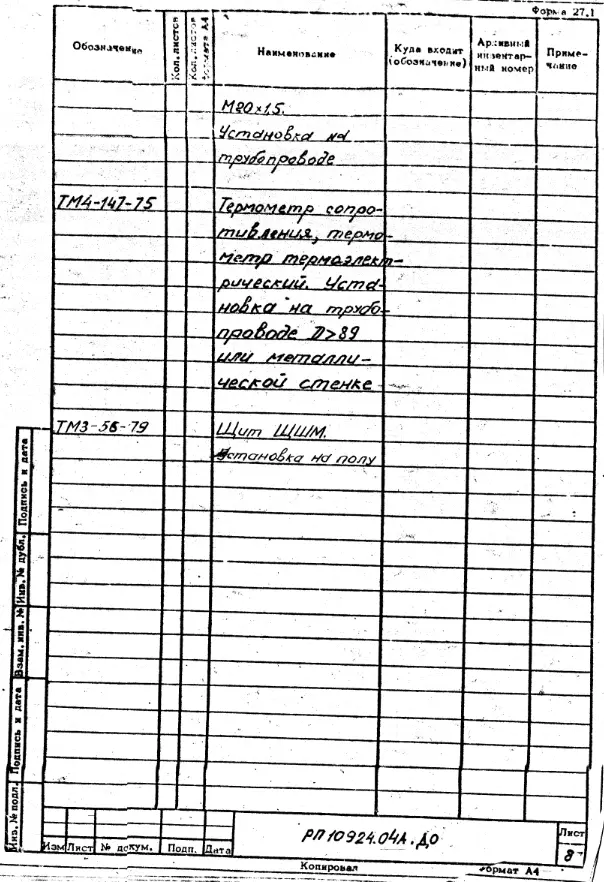 Форма 27.1
Обозначение
Кол. листов
Кол. листов формата А4
Наименование
Куда входит (обозначение)
Архивный инвентарный номер
Примечание
М20х1.5.
Установка на
трубопроводе
ТМ4-147-75 Термометр сопро-
тивления, термо-
метр термоэлект-
рический. Уста-
новка на трубо-
проводе D>89
или металли-
ческой стенке
ТМ3-56-79 Щит ЩШМ.
Установка на полу
Подпись и дата
Инв. № дубл.
Взам. инв. №
Подпись и дата
Инв. № подл.
Изм Лист № докум. Подп. Дата
РП 10924.04А.ДО
Лист
8
Копировал Формат А4